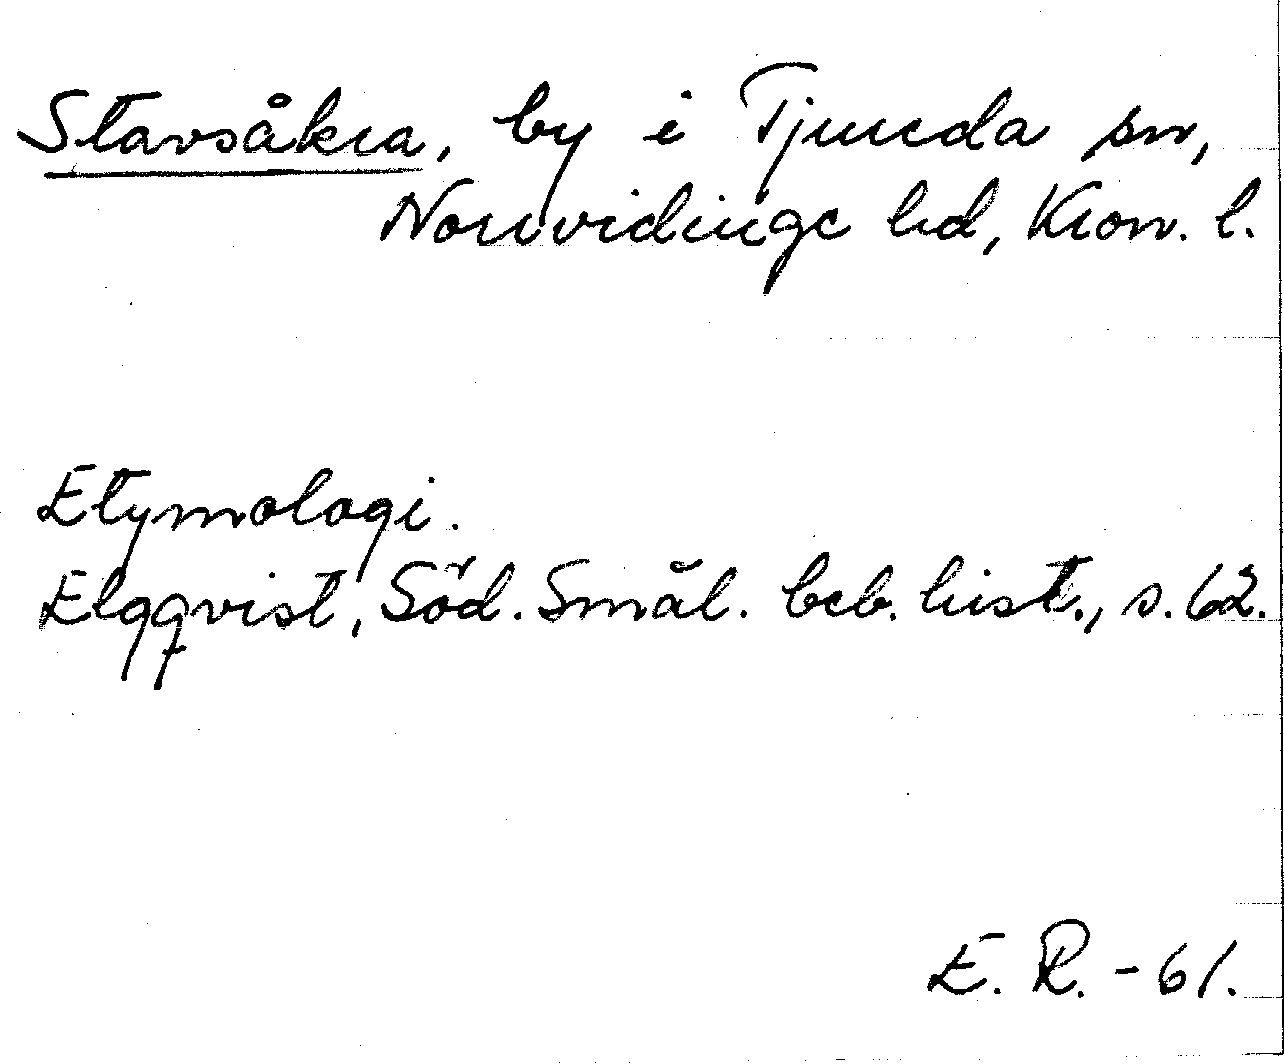 Stavsåkra, by i Tjureda sn,
Norrvidinge hd, Kron. l.
Etymologi.
Elgqvist, Söd. Smål. beb. hist., s. 62.
E. R. - 61.